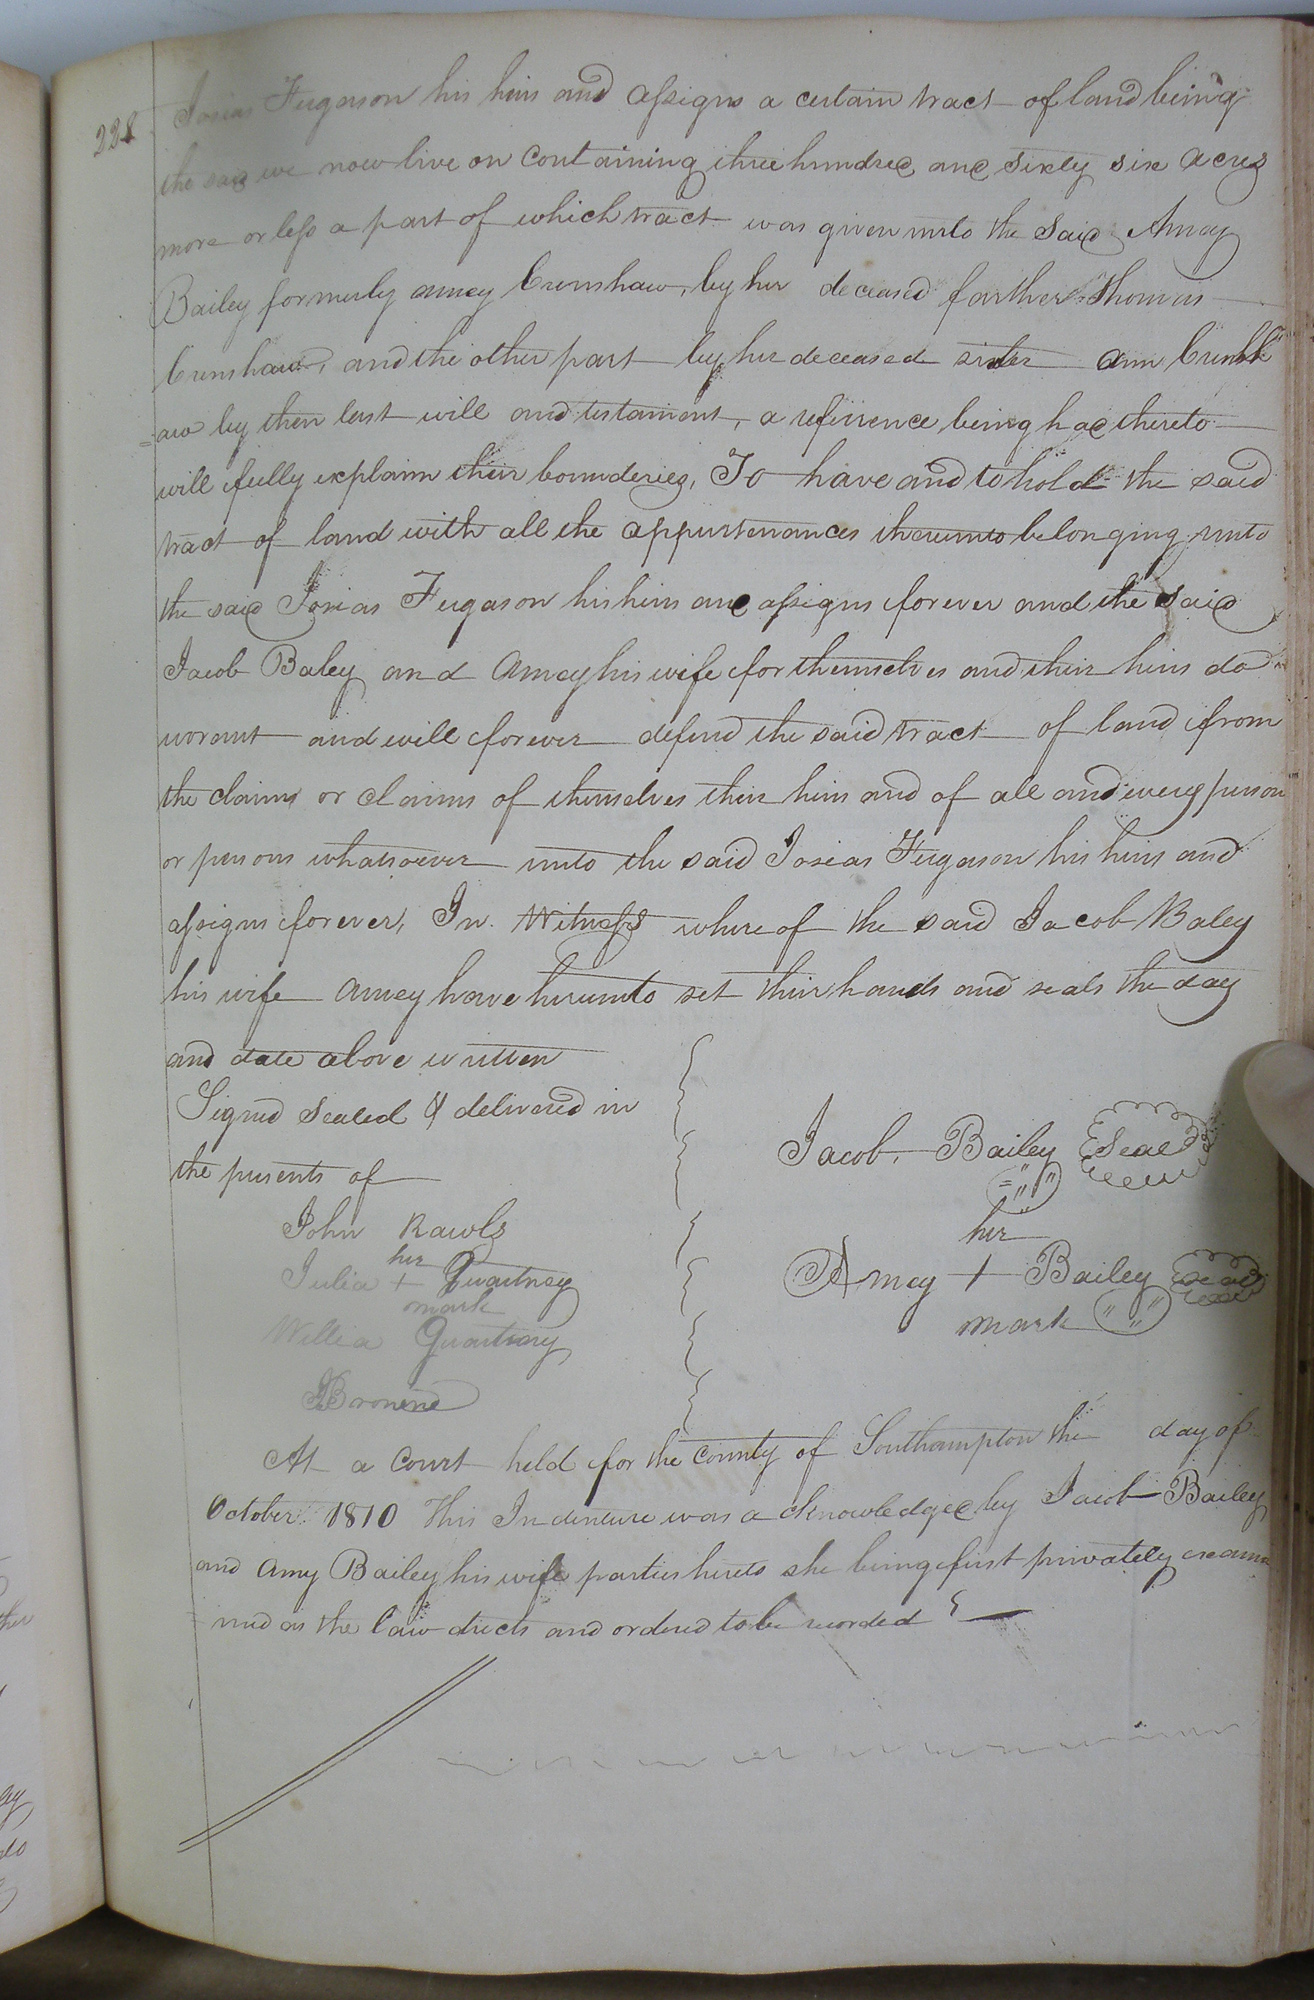 228
Josias Fugason his heirs and assigns a certain tract of land being
the said we now live on containing three hundred and sixty six acres
more or less a part of which tract was given unto the said Amey
Bailey formerly amey Crenshaw, by her deceased farther Thomas
Crenshaw, and the other part by her deceased sister ann Crensh
=aw by their last will and testament, a referrence being had thereto
will fully explain their bounderies, To have and to hold the said
tract of land with all the appurtenances thereunto belonging unto
the said Josias Fugason his heirs and assigns forever and the said
Jacob Baley and Amey his wife for themselves and their heirs do
worant and will forever defend the said tract of land from
the claim or claims of themselves their heirs and of all and every person
or persons whatsoever unto the said Josias Fugason his heirs and
assigns forever, In Witness where of the said Jacob Baley
his wife Amey have hereunto set their hands and seals the day
and date above written
Signed Sealed & delivered in
the presents of
Jacob. Bailey Seal
John Rawls
her
Julia + Gwaltney
mark
her
Amey + Bailey seal
mark
Gwaltney
At a Court held for the county of Southampton the day of
October 1810 This Indenture was acknowledged by Jacob Bailey
and Amy Bailey his wife parties hereto she being first privately exami
ned as the law directs and ordered to be recorded